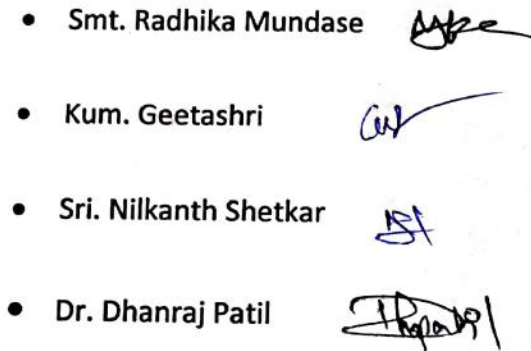 • Smt. Radhika Mundase
• Kum. Geetashri
• Sri. Nilkanth Shetkar
• Dr. Dhanraj Patil